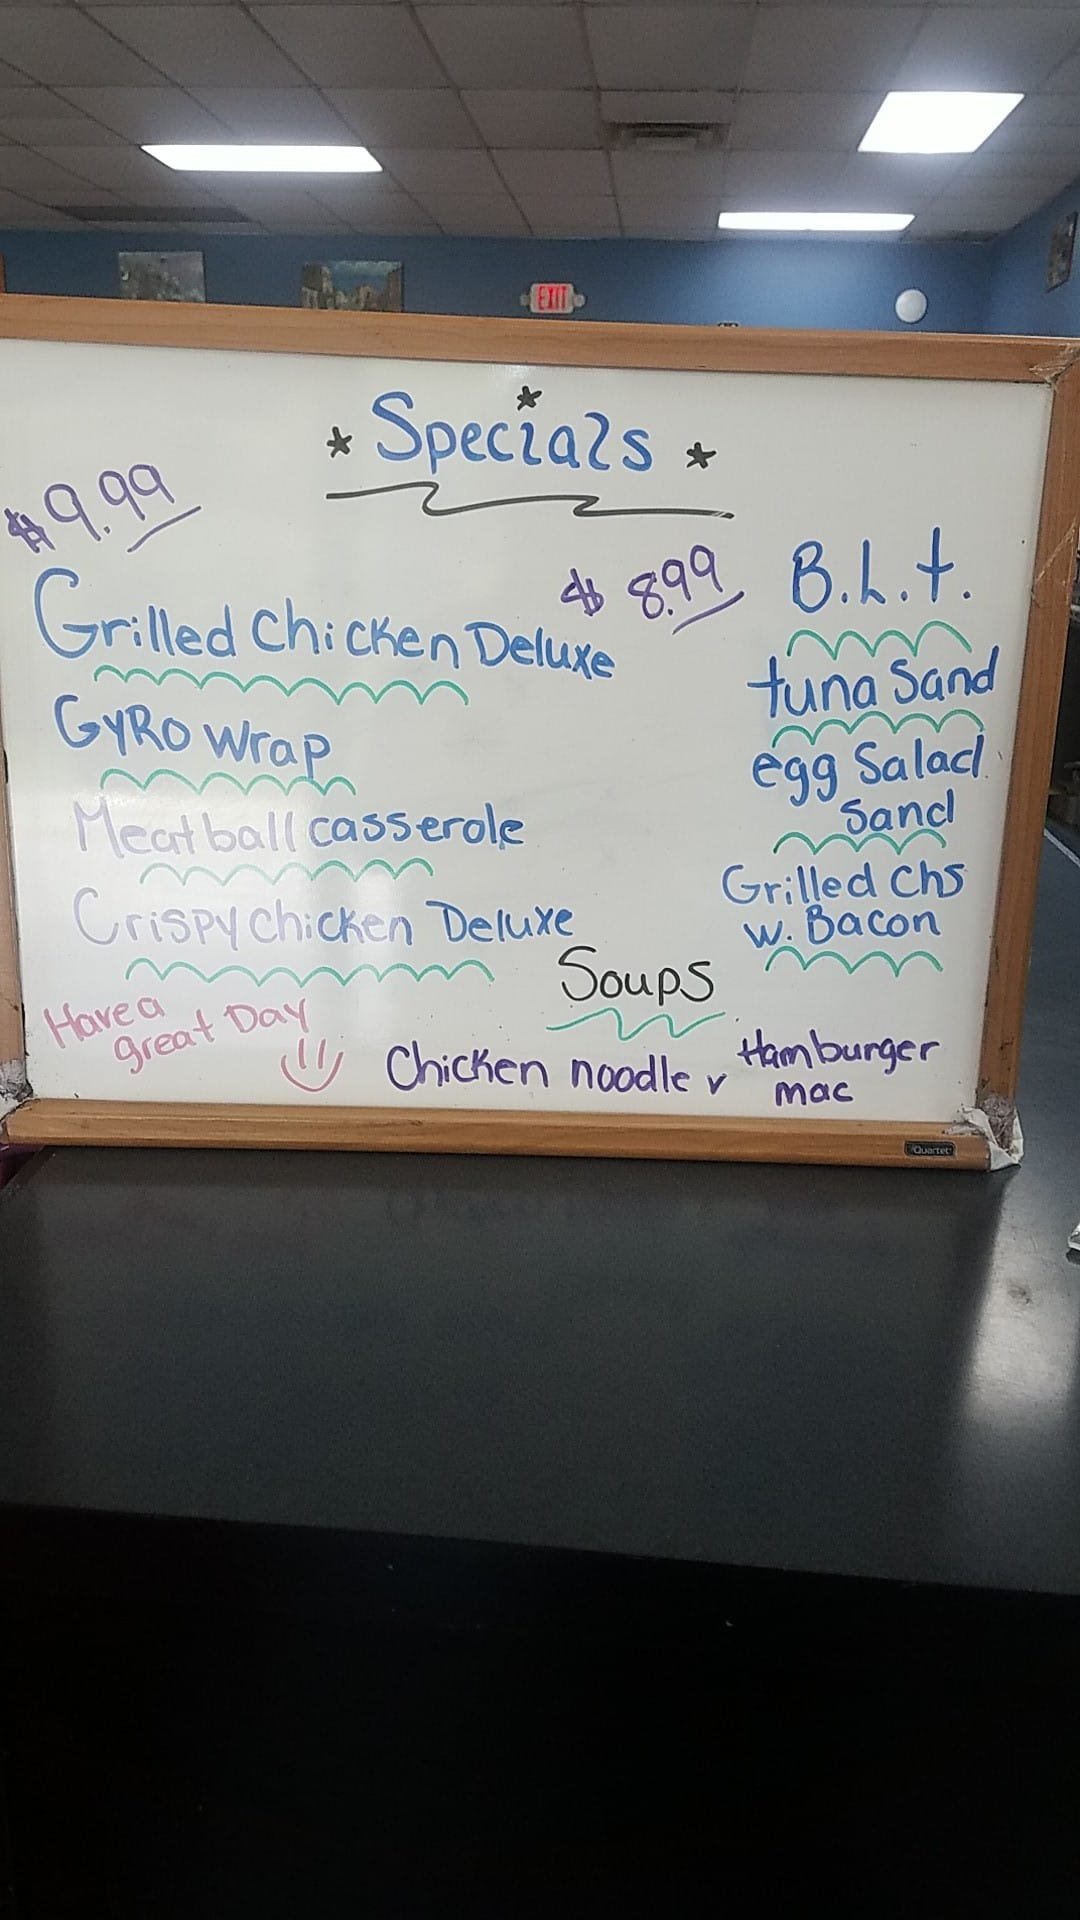 EXIT
Specials
$9.99
Grilled Chicken Deluxe
GyRo wrap
Meatball casserole
Crispy chicken Deluxe
$8.99
B.L.t.
tuna Sand
egg Salad
Sand
Grilled Chs
w. Bacon
Soups
Chicken noodle
Hamburger
mac
Have a
great Day
Quartet